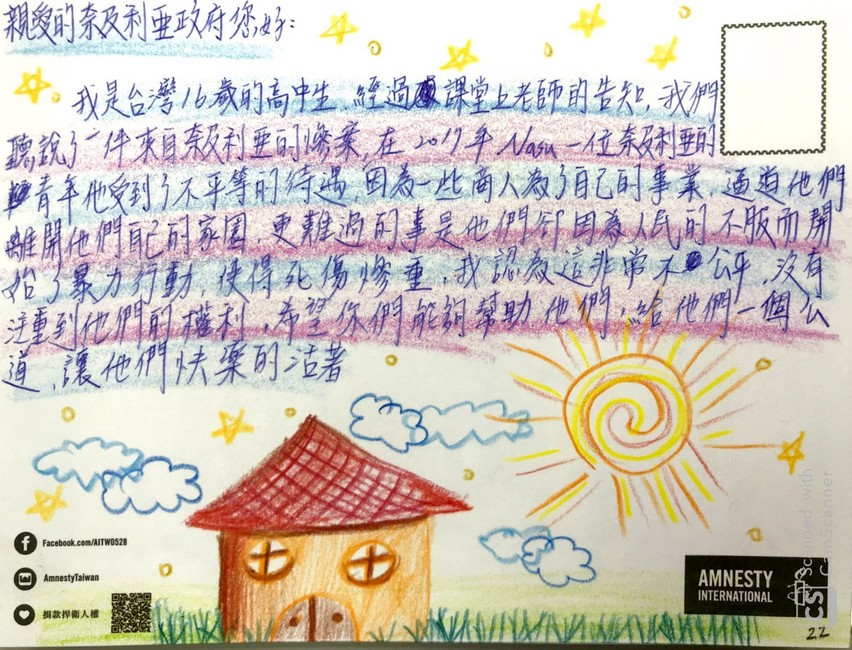 親愛的奈及利亞政府您好:
我是台灣16歲的高中生,經過課堂上老師的告知,我們
聽說了一件來自奈及利亞的慘案,在2017年Nasu一位奈及利亞的
青年他受到了不平等的待遇,因為一些商人為了自己的事業,逼迫他們
離開他們自己的家園,更難過的事是他們卻因為人民的不服而開
始了暴力行動,使得死傷慘重,我認為這非常不公平,沒有
注重到他們的權利,希望你們能夠幫助他們,給他們一個公
道,讓他們快樂的活著
Facebook.com/AITW0528
AmnestyTaiwan
捐款捍衛人權
AMNESTY
INTERNATIONAL
22
Scanned with
CS CamScanner